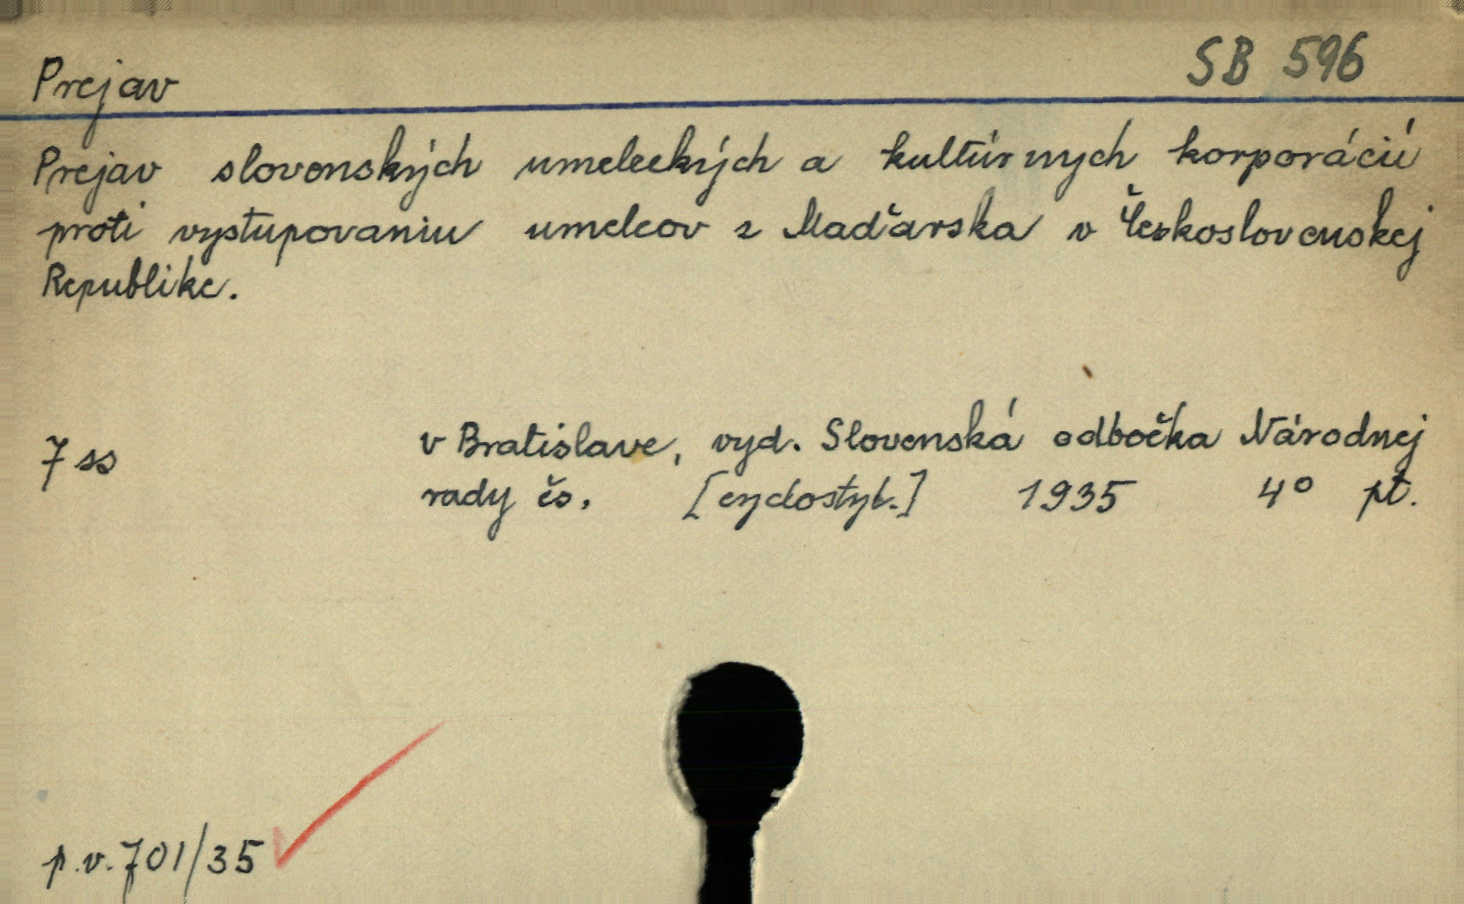 Prejav SB 596
Prejav slovenských umeleckých a kultúrnych korporácií
proti vystupovaniu umelcov z Maďarska v Československej
Republike.
7 ss v Bratislave, vyd. Slovenská odbočka Národnej
rady čs. [cyclostyl.] 1935 4° pt.
p.v. 701/35